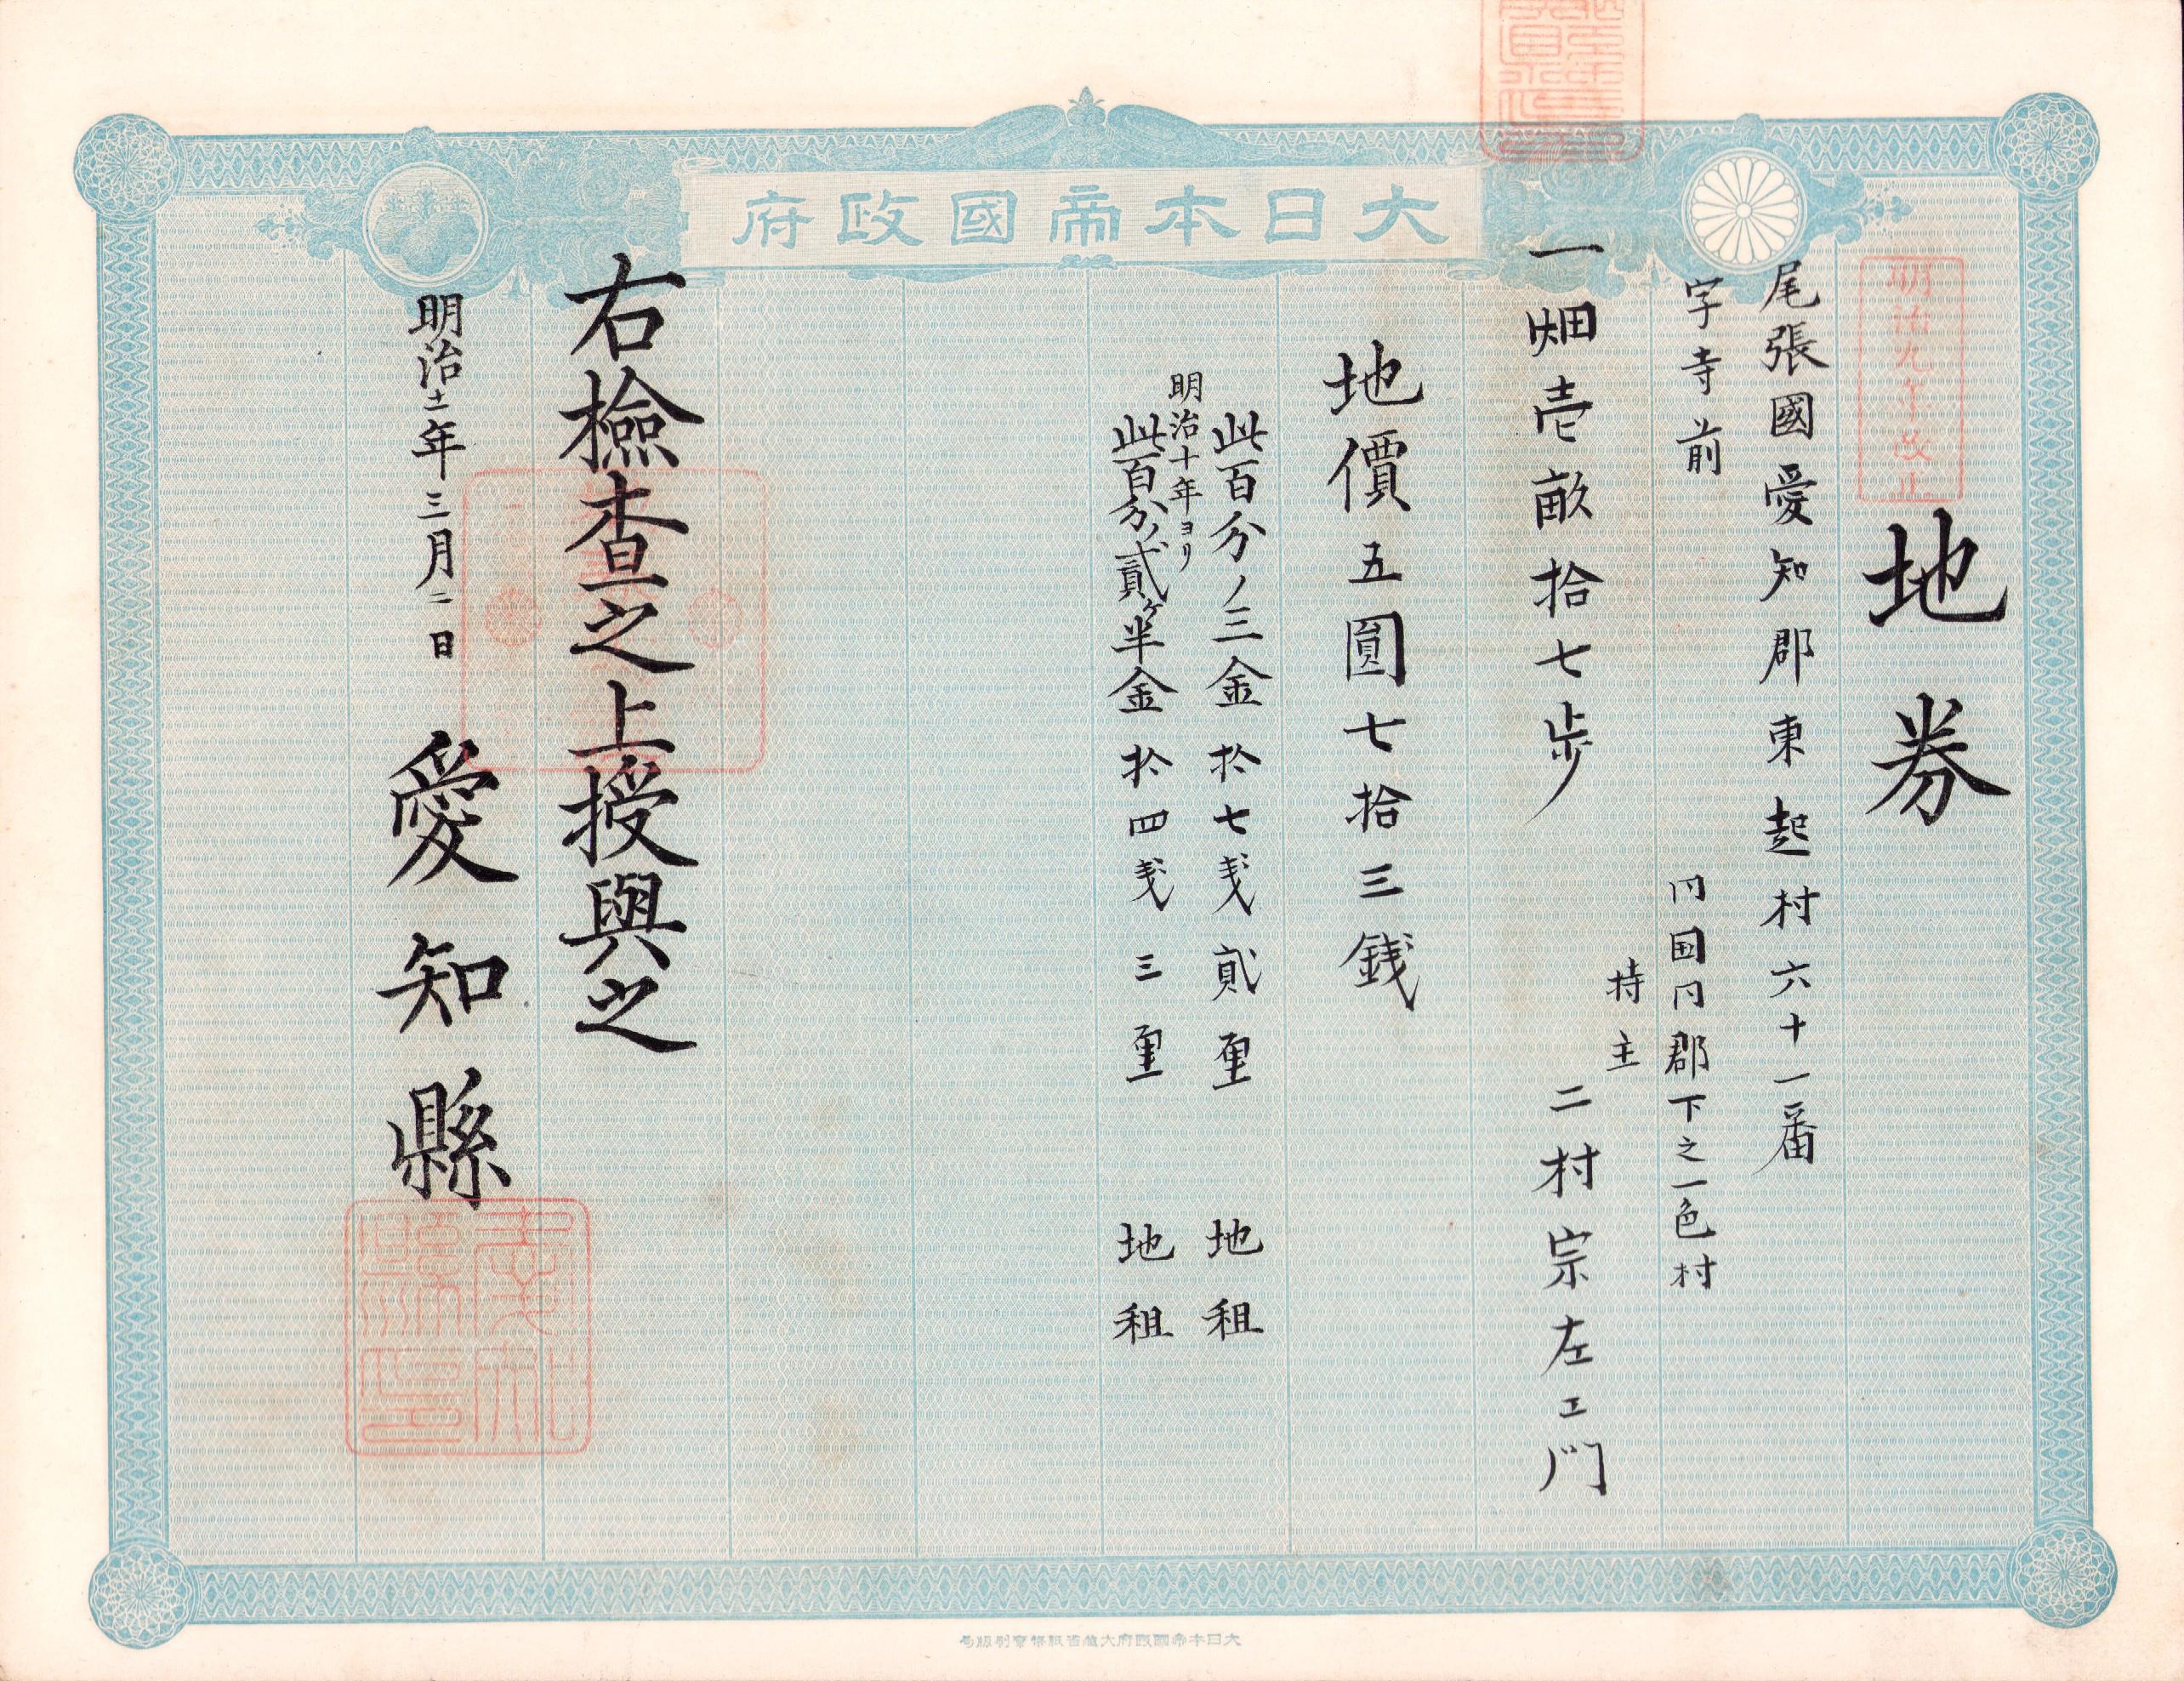 大日本帝國政府
明治九年改正
地券
尾張國愛知郡東起村六十一番
字寺前
同国同郡下之一色村
持主
二村宗左エ門
一畑壱畝拾七歩
地價五圓七拾三銭
此百分ノ三金拾七戋貮厘 地租
明治十年ヨリ
此百分ノ貳ヶ半金拾四戋三厘 地租
右檢査之上授與之
明治十二年三月二日 愛知縣
愛知縣印